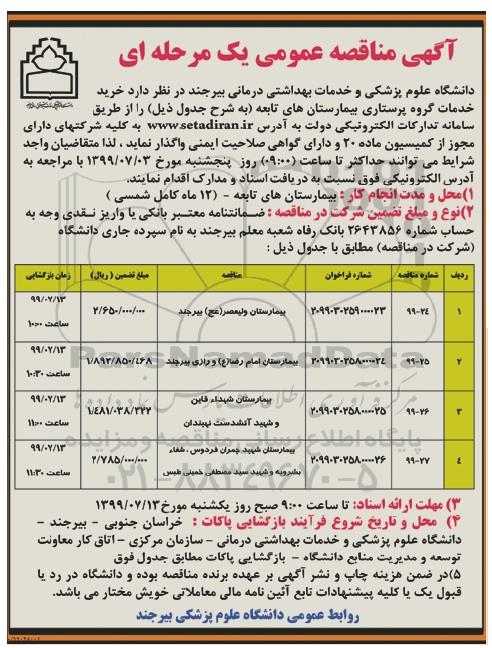 آگهی مناقصه عمومی یک مرحله ای
دانشگاه علوم پزشکی و خدمات بهداشتی درمانی بیرجند در نظر دارد خرید
خدمات گروه پرستاری بیمارستان های تابعه (به شرح جدول ذیل) را از طریق
سامانه تدارکات الکترونیکی دولت به آدرس www.setadiran.ir به کلیه شرکتهای دارای
مجوز از کمیسیون ماده ۲۰ و دارای گواهی صلاحیت ایمنی واگذار نماید ، لذا متقاضیان واجد
شرایط می توانند حداکثر تا ساعت (۰۹:۰۰) روز پنجشنبه مورخ ۱۳۹۹/۰۷/۰۳ با مراجعه به
آدرس الکترونیکی فوق نسبت به دریافت اسناد و مدارک اقدام نمایند.
۱)محل و مدت انجام کار : بیمارستان های تابعه - (۱۲ ماه کامل شمسی )
۲)نوع و مبلغ تضمین شرکت در مناقصه : ضمانتنامه معتبر بانکی یا واریز نقدی وجه به
حساب شماره ۲۶۴۳۸۵۶ بانک رفاه شعبه معلم بیرجند به نام سپرده جاری دانشگاه
(شرکت در مناقصه) مطابق با جدول ذیل :
ردیف شماره مناقصه شماره فراخوان مناقصه مبلغ تضمین ( ریال) زمان بازگشایی
۱ ۹۹-۲۴ ۲۰۹۹۰۳۰۲۵۹۰۰۰۰۲۳ بیمارستان ولیعصر(عج) بیرجند ۲/۶۵۰/۰۰۰/۰۰۰ ۹۹/۰۷/۱۳ ساعت ۱۰:۰۰
۲ ۹۹-۲۵ ۲۰۹۹۰۳۰۲۵۸۰۰۰۰۲۴ بیمارستان امام رضا(ع) و رازی بیرجند ۱/۸۹۲/۸۵۰/۴۶۸ ۹۹/۰۷/۱۳ ساعت ۱۰:۳۰
۳ ۹۹-۲۶ ۲۰۹۹۰۳۰۲۵۸۰۰۰۰۲۵ بیمارستان شهداء قاین و شهید آتشدست نهبندان ۱/۴۸۱/۰۳۸/۳۲۲ ۹۹/۰۷/۱۳ ساعت ۱۱:۰۰
۴ ۹۹-۲۷ ۲۰۹۹۰۳۰۲۵۸۰۰۰۰۲۶ بیمارستان شهید چمران فردوس ، شفاء بشرویه و شهید سید مصطفی خمینی طبس ۲/۷۸۵/۰۰۰/۰۰۰ ۹۹/۰۷/۱۳ ساعت ۱۱:۳۰
ParsNamadData
پایگاه اطلاع رسانی مناقصه و مزایده
۰۲۱-۸۸۳۴۹۶۷۰-۵
۳) مهلت ارائه اسناد: تا ساعت ۹:۰۰ صبح روز یکشنبه مورخ ۱۳۹۹/۰۷/۱۳
۴) محل و تاریخ شروع فرآیند بازگشایی پاکات : خراسان جنوبی - بیرجند -
دانشگاه علوم پزشکی و خدمات بهداشتی درمانی - سازمان مرکزی - اتاق کار معاونت
توسعه و مدیریت منابع دانشگاه - بازگشایی پاکات مطابق جدول فوق
۵)در ضمن هزینه چاپ و نشر آگهی بر عهده برنده مناقصه بوده و دانشگاه در رد یا
قبول یک یا کلیه پیشنهادات تابع آئین نامه مالی معاملاتی خویش مختار می باشد.
روابط عمومی دانشگاه علوم پزشکی بیرجند